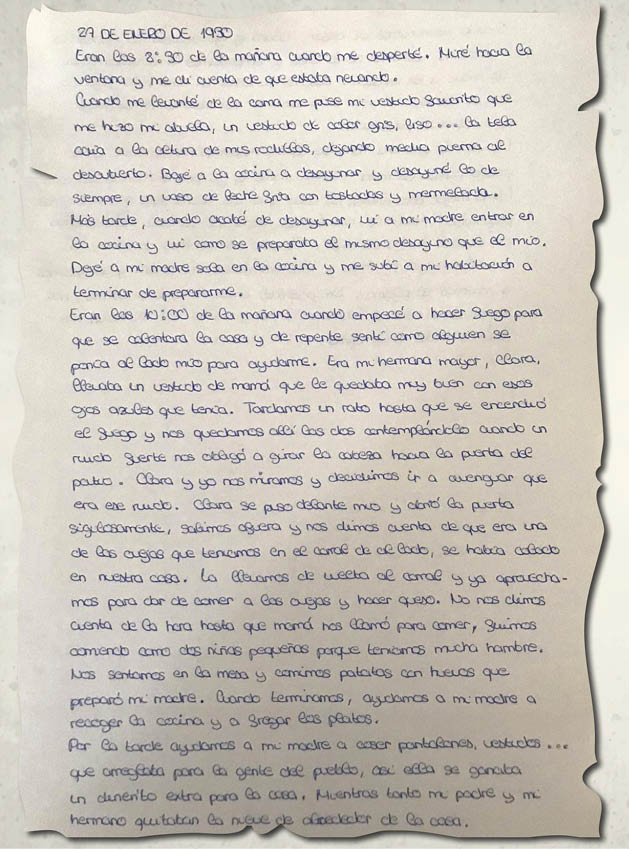 27 DE ENERO DE 1930
Eran las 8:30 de la mañana cuando me desperté. Miré hacia la
ventana y me di cuenta de que estaba nevando.
Cuando me levanté de la cama me puse mi vestido favorito que
me hizo mi abuela, un vestido de color gris, liso... la tela
caía a la altura de mis rodillas, dejando media pierna al
descubierto. Bajé a la cocina a desayunar y desayuné lo de
siempre, un vaso de leche fría con tostadas y mermelada.
Más tarde, cuando acabé de desayunar, vi a mi madre entrar en
la cocina y vi como se preparaba el mismo desayuno que el mío.
Dejé a mi madre sola en la cocina y me subí a mi habitación a
terminar de prepararme.
Eran las 10:00 de la mañana cuando empecé a hacer fuego para
que se calentara la casa y de repente sentí como alguien se
ponía al lado mío para ayudarme. Era mi hermana mayor, Clara,
llevaba un vestido de mamá que le quedaba muy bien con esos
ojos azules que tenía. Tardamos un rato hasta que se encendió
el fuego y nos quedamos allí las dos contemplándolo cuando un
ruido fuerte nos obligó a girar la cabeza hacia la puerta del
patio. Clara y yo nos miramos y decidimos ir a averiguar que
era ese ruido. Clara se puso delante mío y abrió la puerta
sigilosamente, salimos afuera y nos dimos cuenta de que era una
de las ovejas que teníamos en el corral de al lado, se había colado
en nuestra casa. La llevamos de vuelta al corral y ya aprovecha-
mos para dar de comer a las ovejas y hacer queso. No nos dimos
cuenta de la hora hasta que mamá nos llamó para comer, fuimos
corriendo como dos niñas pequeñas porque teníamos mucha hambre.
Nos sentamos en la mesa y comimos patatas con huevos que
preparó mi madre. Cuando terminamos, ayudamos a mi madre a
recoger la cocina y a fregar los platos.
Por la tarde ayudamos a mi madre a coser pantalones, vestidos...
que arreglaba para la gente del pueblo, así ella se ganaba
un dinerito extra para la casa. Mientras tanto mi padre y mi
hermano quitaban la nieve de alrededor de la casa.